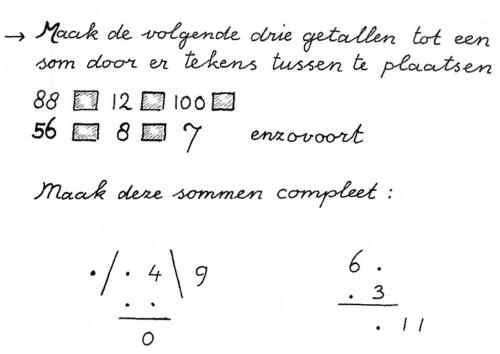 → Maak de volgende drie getallen tot een
som door er tekens tussen te plaatsen
88 □ 12 □ 100 □
56 □ 8 □ 7 enzovoort
Maak deze sommen compleet :
. / . 4 \ 9
. .
0
6 .
. 3
. 11